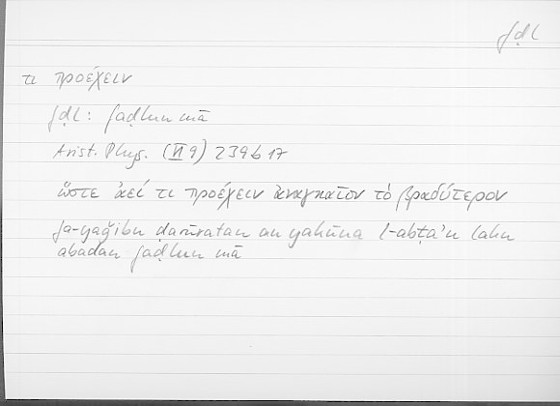 fḍl
τι προέχειν
fḍl: faḍlun mā
Arist. Phys. (VI 9) 239b17
ὥστε ἀεί τι προέχειν ἀναγκαῖον τὸ βραδύτερον
fa-yaǧibu ḍarūratan an yakūna l-abṭa'u lahu
abadan faḍlun mā